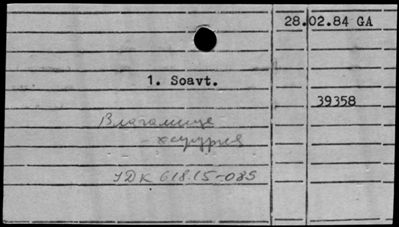 28.02.84 GA
1. Soavt.
39358
Влагалище
- хирургия
УДК 618.15-089